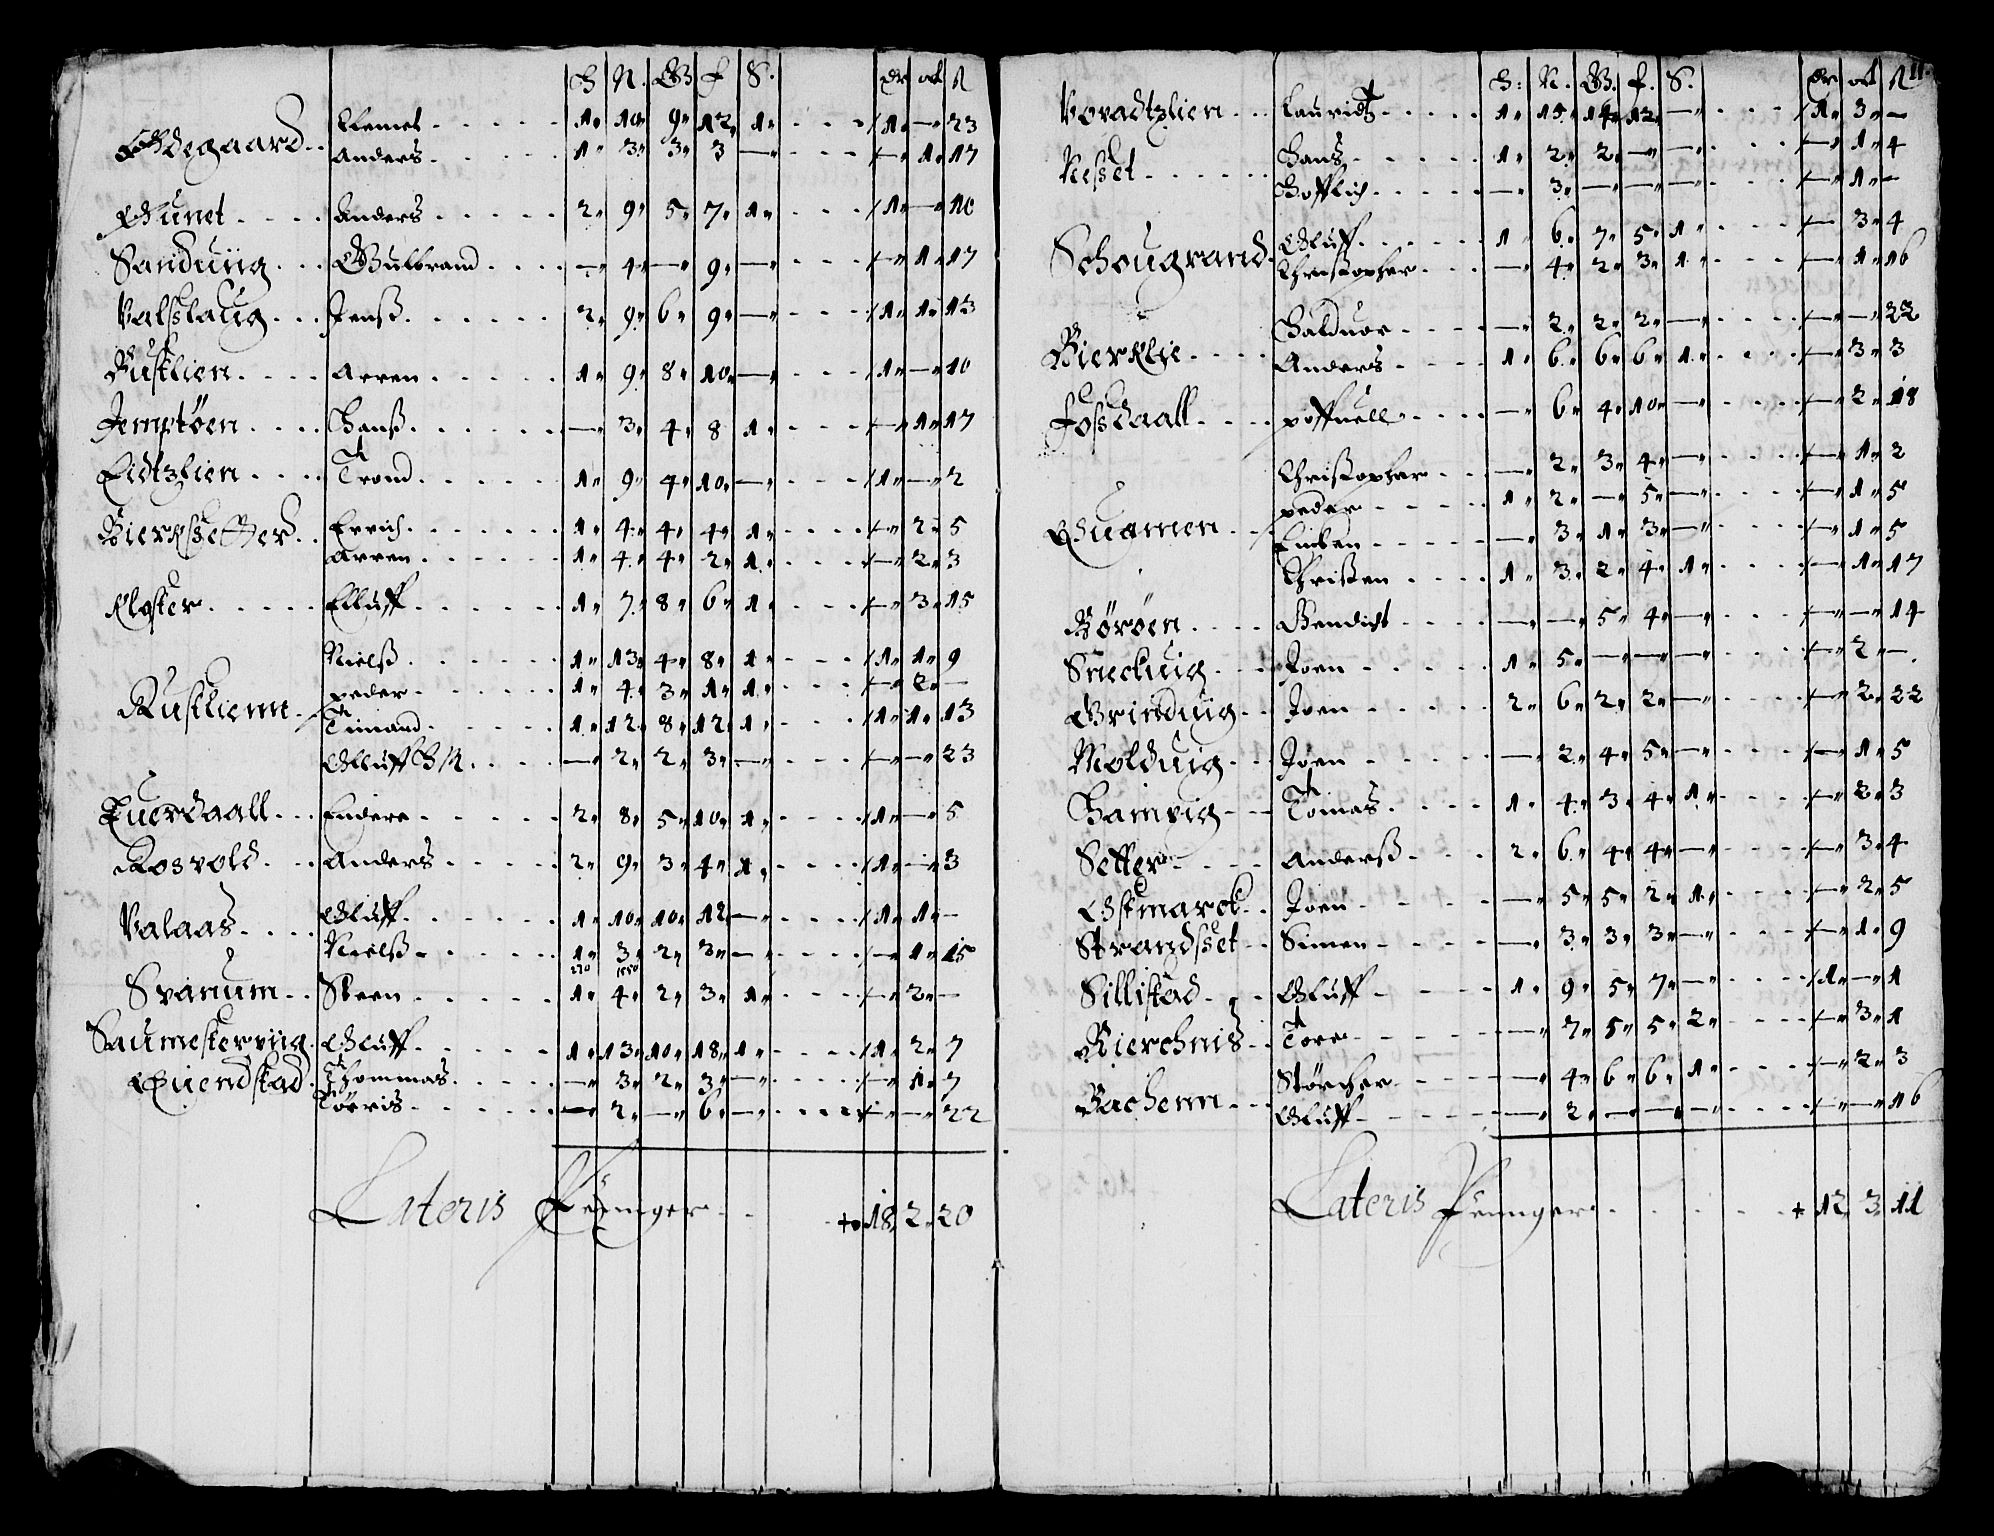 H N. G f S. dr ort ß
Ødegaard.. Clemet 1" 10" 9" 12" 1" /1" — 23
Anders 1" 3" 3" 3 — — 1" 17
Gunet Anders 2" 9" 5" 7" 1" /1" — 10
Sanduiig Gulbrand — 4" — 9" — — 1" 17
Valslaug Jenß 2" 9" 6" 9" — /1" 1" 13
Buslien Arren 1" 9" 8" 10" — /1" — 10
Jemptøen Hanß — 3" 4" 8 1" — 1" 17
Eidtzlien Trond 1" 9" 4" 10" — /1" — 2
Bierksetter Errich 1" 4" 4" 4" 1" — 2" 5
Arren 1" 4" 4" 2" 1" — 2" 3
Kloster Elluff 1" 7" 8" 6" 1" — 3" 15
Nielß 1" 13" 4" 8" 1" /1" 1" 9
Rustliem peder 1" 4" 3" 1" 1" — 2" —
Timand 1" 12" 8" 12" 1" /1" 1" 13
Olluff H M — 2" 2" 3" — — — 23
Tuerdaall Endere 2" 8" 5" 10" 1" /1" — 5
Rosvold Anders 2" 9" 3" 4" 1" /1" — 3
Valaas Oluff 1" 10" 10" 12" — /1" 1" —
Nielß 1" 3" 2" 3" — — 1" 15
Svanum Steen 1" 4" 2" 3" 1" — 2" —
Saumesterviig Oluff 1" 13" 10" 18" 1" /1" 2" 7
Euiendstad Thommas — 3" 2" 3" — — 1" 7
Tøeris — 2" — 6" — — — 22
Lateris Penninger 18" 2" 20
11.
H: N. G. f. S. dr ort ß
Voradtzlien Lauridtz 1" 15" 14" 12" — /1" 3" —
Nesset Hans 1" 2" 2" — — — 1" 4
Hofflich — 3" — — — — 1" —
Schougrand Oluff 1 6" 7" 5" 1" — 3" 4
Christopher — 4" 2" 3" 1" — 1" 16
Bierklie Halduor — 2" 2" 2" — — — 22
Anders 1" 6" 6" 6" 1" — 3" 3
Fossdaall poffuell — 6" 4" 10" — — 2" 18
Christopher — 2" 3" 4" — — 1" 2
Quamen peder 1" 2" — 5" — — 1" 5
Einben — 3" 1" 3" — — 1" 5
Christen 1" 3" 2" 4" 1" — 1" 17
Børøen Bendicht — — 5" 4" — — — 14
Sneckuig Joen 1" 5" — — — — 2" —
Grinduiig Joen 2" 6" 2" 2" — — 2" 22
Molduig Joen — 2" 4" 5" — — 1" 5
Hamvig Tomas 1" 4" 3" 4" 1" — 2" 3
Setter Anderß 2" 6" 4" 4" — — 3" 4
Østmarck Joen — 5" 5" 2" 1" — 2" 5
Strandsset Simen — 3" 3" 3" — — 1" 9
Sillistad Oluff 1" 9" 5" 7" — /1" — 1
Kierchnis Tore — 7" 5" 5" 2" — 3" 1
Bachenn Størcher — 4" 6" 6" 1" — 2" 3
Oluff — 2" — — — — — 16
Lateris Penninger 12" 3" 11